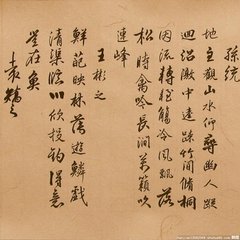 孫統
地主觀山水仰尋幽人蹤
迴沼激中逵疎竹間脩桐
因流轉輕觴冷風飄落
松時禽吟長澗萬籟吹
連峰
王彬之
鮮葩映林薄遊鱗戲
清渠臨川欣投釣得意
豈在魚
袁嶠之